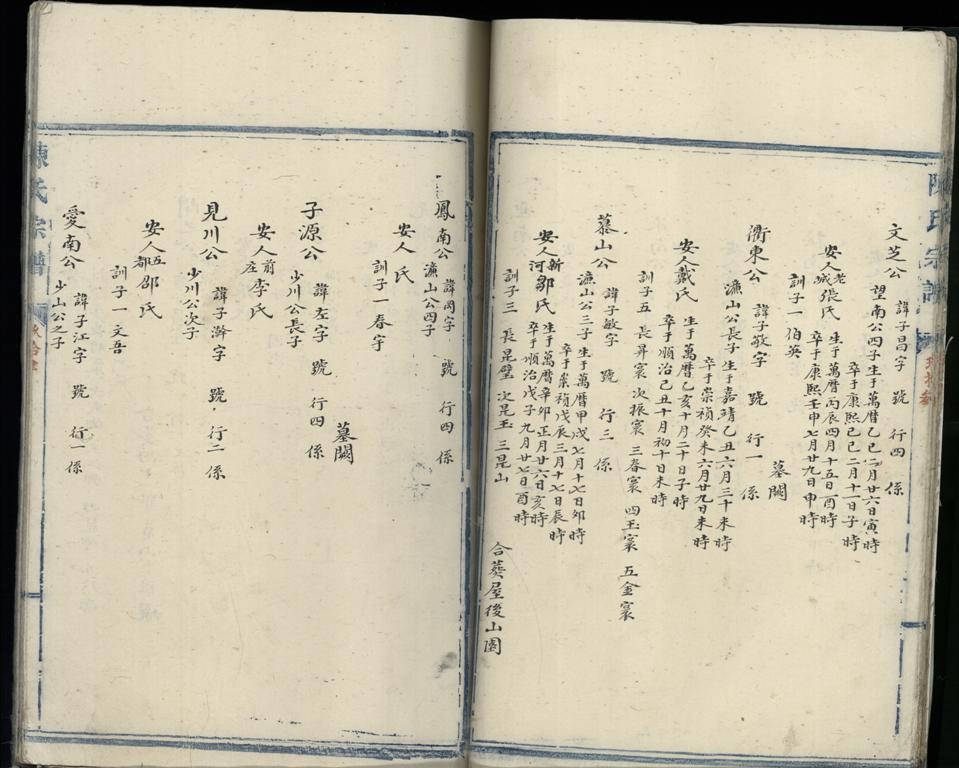 陳氏宗譜
文芝公 諱子昌字 號 行四 係
望南公四子生于萬曆乙巳二月廿六日寅時
卒于康熙己巳二月十一日子時
安人老城張氏 生于萬曆丙辰四月十五日酉時
卒于康熙壬申七月廿九日申時
訓子一 伯英
墓闕
衢東公 諱子敬字 號 行一 係
濂山公長子 生于嘉靖乙丑六月三十未時
卒于崇禎癸未六月廿九日未時
安人戴氏 生于萬曆乙亥十月二十日子時
卒于順治己丑十月初十日未時
訓子五 長昇寰 次振寰 三春寰 四玉寰 五金寰
慕山公 諱子敏字 號 行三 係
濂山公三子 生于萬曆甲戌七月十七日卯時
卒于崇禎戊辰三月十七日辰時
安人新河鄒氏 生于萬曆辛卯正月廿六日亥時
卒于順治戊子九月廿七日酉時
訓子三 長昆璧 次昆玉 三昆山
合葬屋後山園
鳳南公 諱岡字 號 行四 係
濂山公四子
安人 氏
訓子一春宇
墓闕
子源公 諱左字 號 行四 係
少川公長子
安人前庄李氏
見川公 諱子瀚字 號 行二 係
少川公次子
安人五都邵氏
訓子一文吾
愛南公 諱子江字 號 行一 係
少山公之子
陳氏宗譜